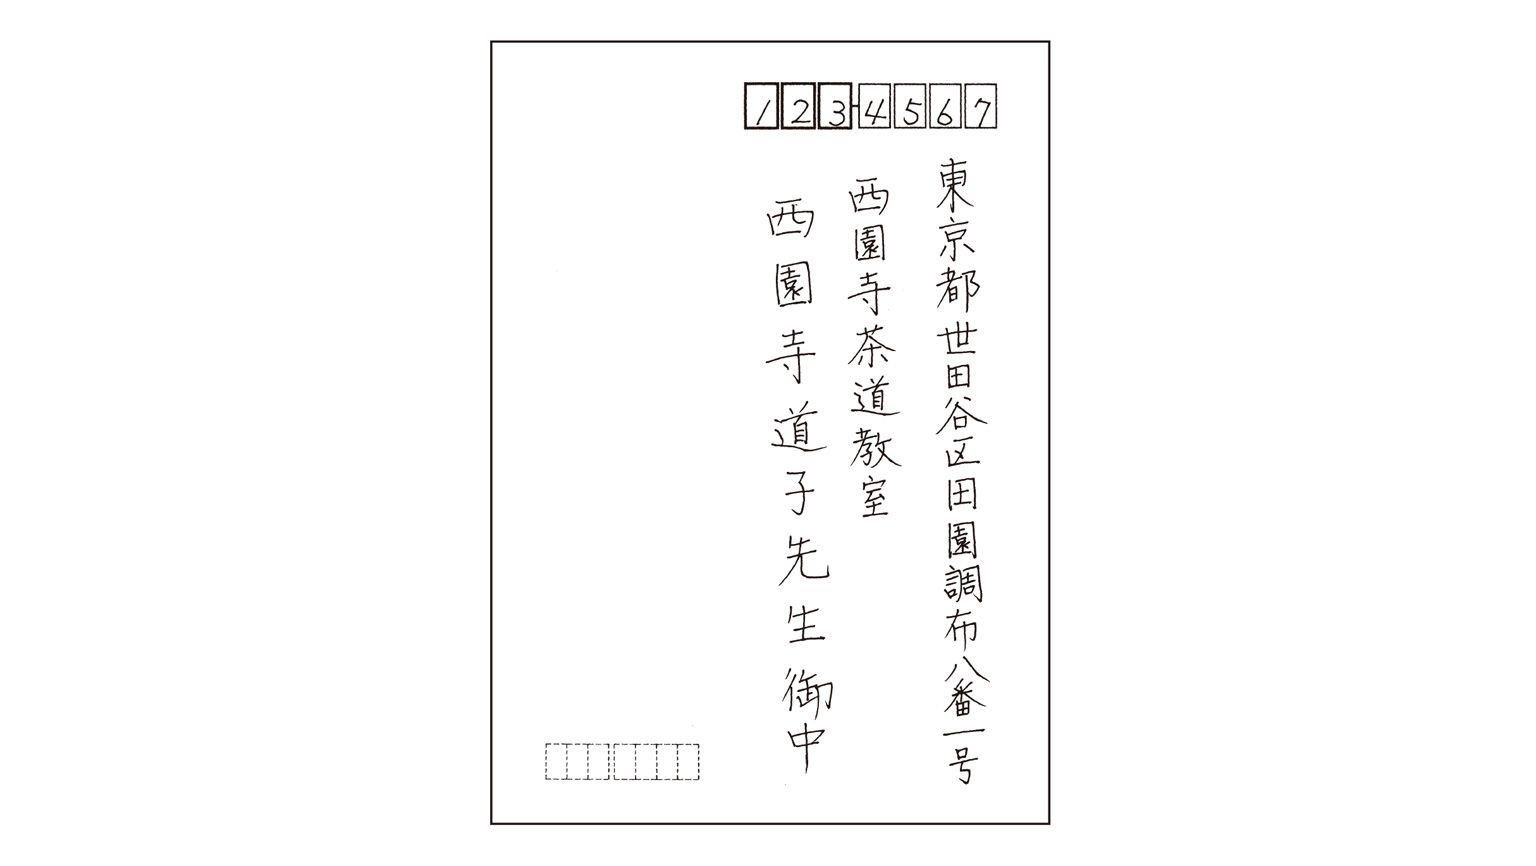 123-4567
東京都世田谷区田園調布八番一号
西園寺茶道教室
西園寺道子先生御中